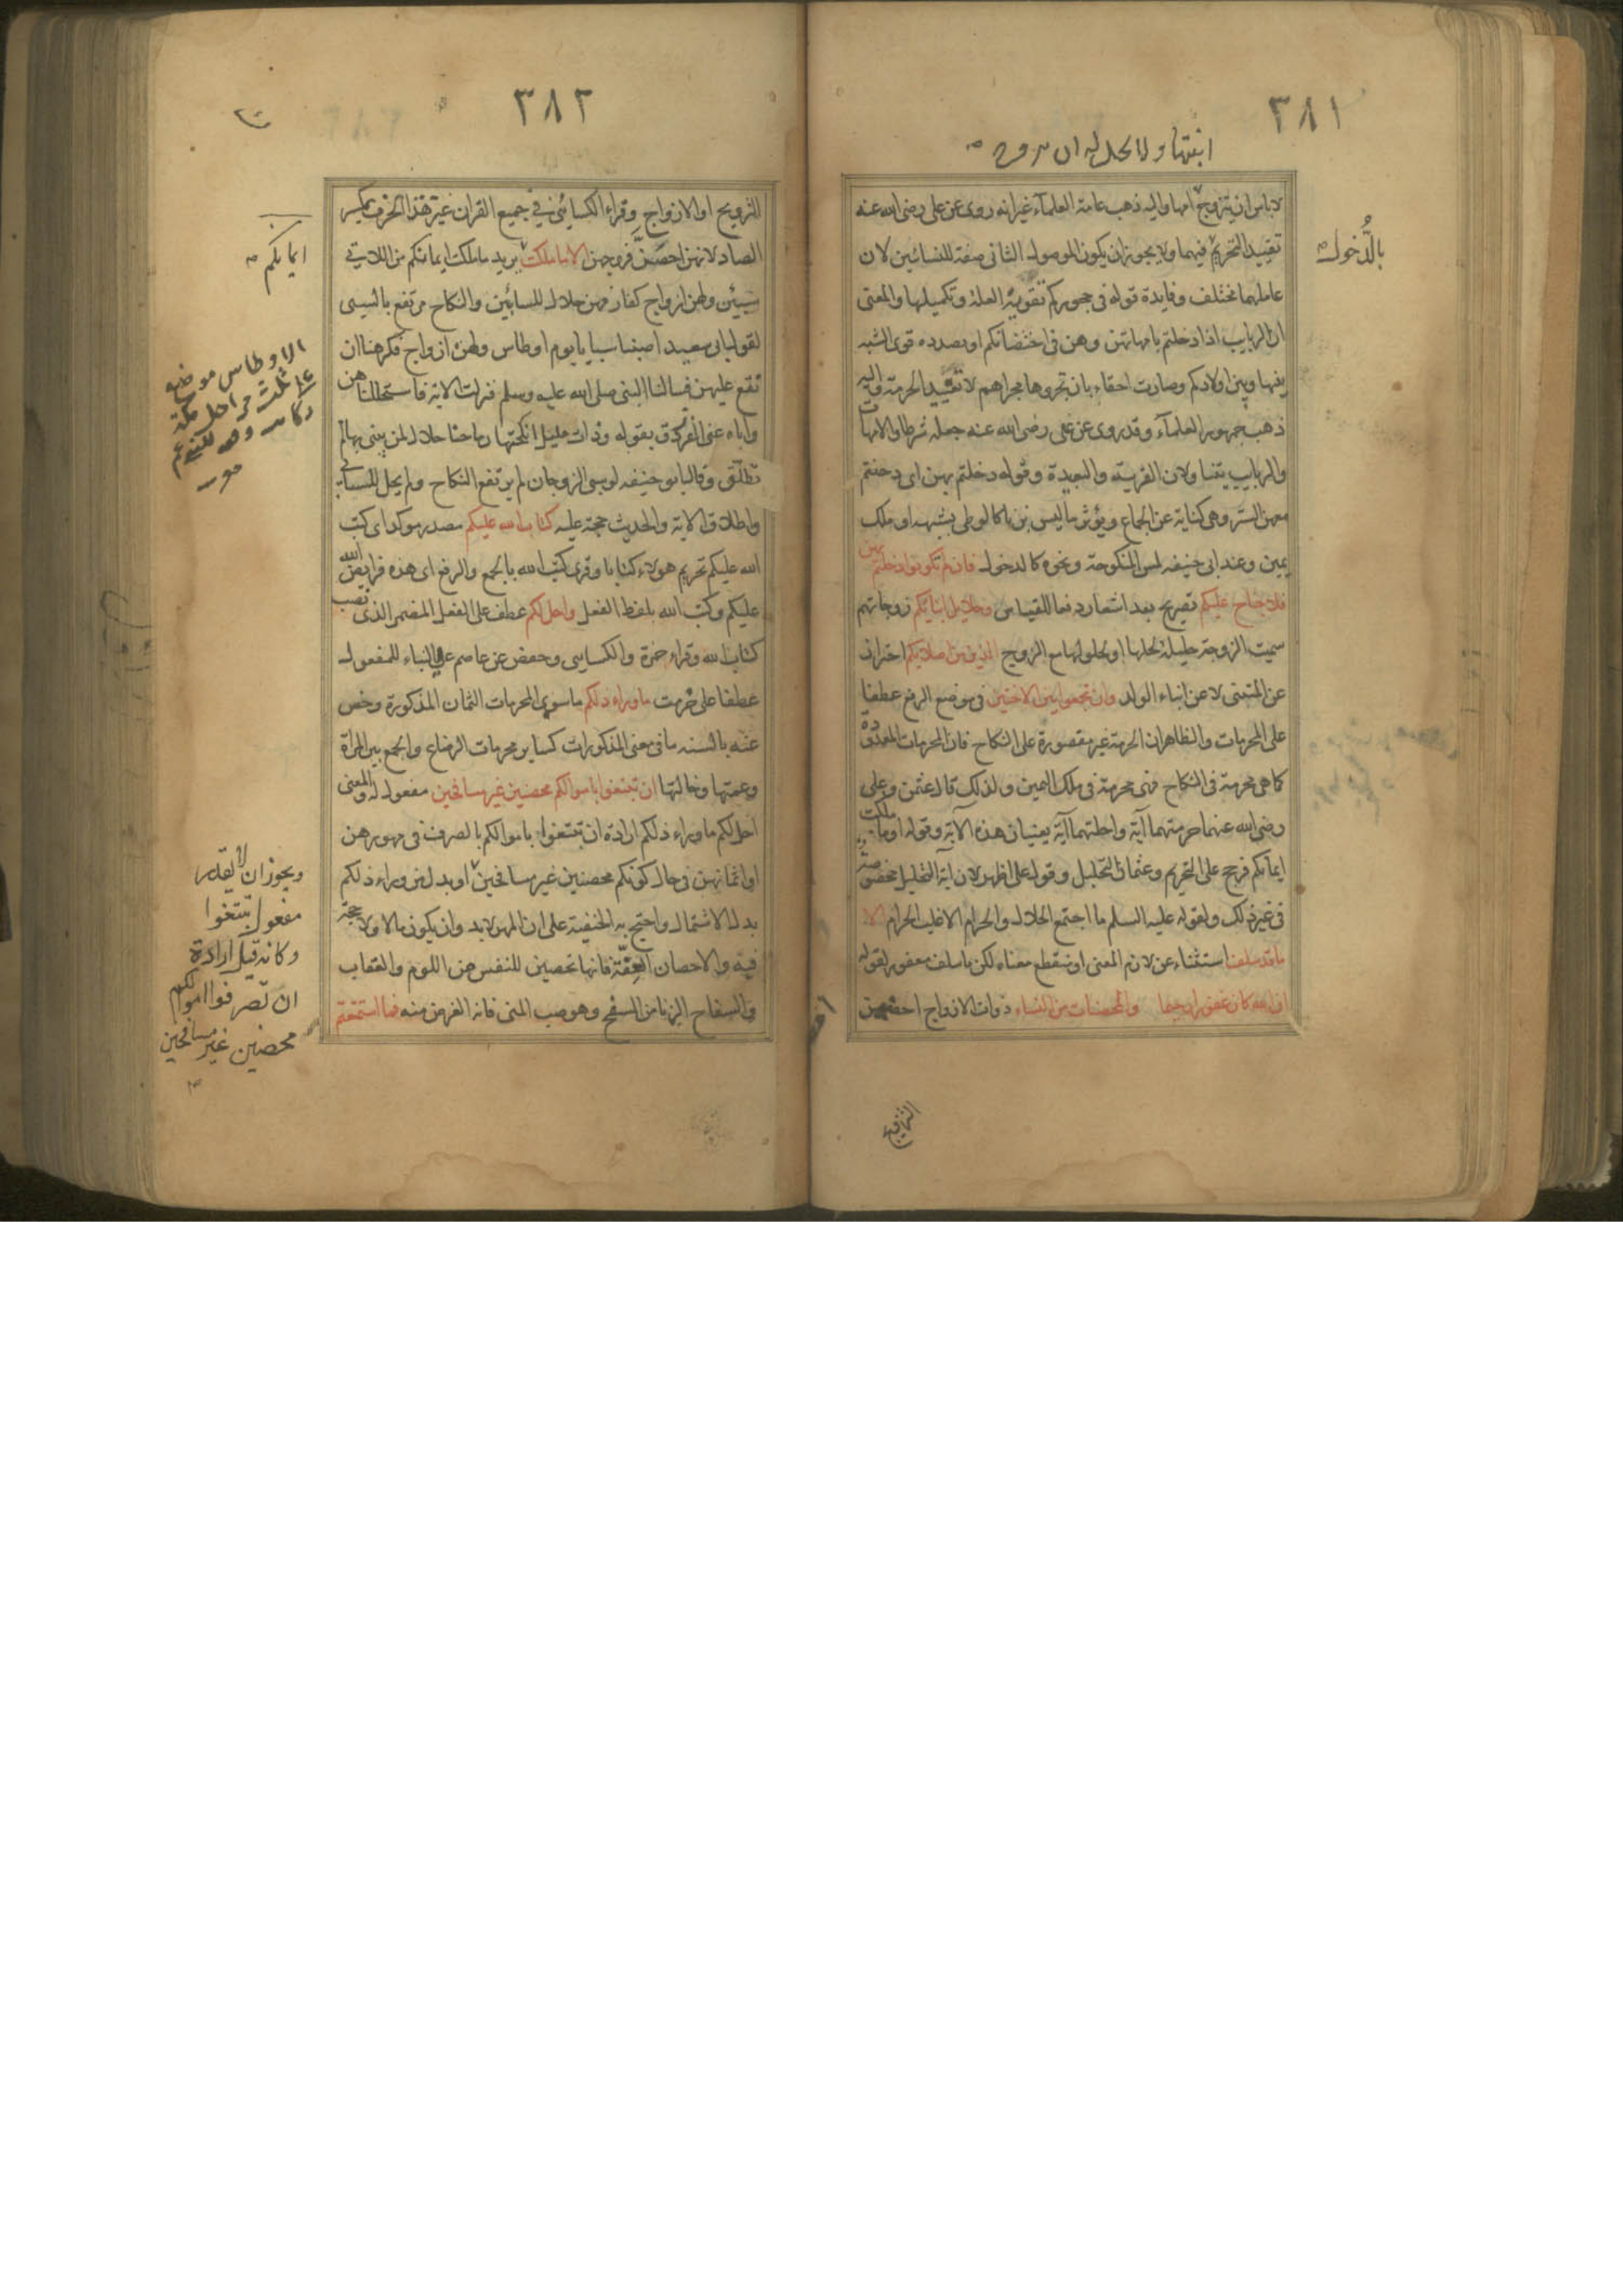 ٣٨١
ابنتها ولا يحل له ان
لاباس ان يتزوج امها واليه ذهب عامة العلماء غير انه روى عن على رضى الله عنه
تقييد التحريم فيهما ولا يجوز ان يكون الموصول الثانى صفة للنسائين لان
بالدُّخول
عاملهما مختلف وفايدة قوله فى حجوركم تقوية العلة وتكميلها والمعنى
ان الربايب اذا دخلتم بامهاتهن وهن فى احتضانكم او بصدده قوى الشبه
بينها وبين اولادكم وصارت احقاء بان تجروها مجراهم لا تقييد الحرمة واليه
ذهب جمهور العلماء وقد روى عن على رضى الله عنه جعله شرطا والامهات
والربايب يتناولان القريبة والبعيدة وقوله دخلتم بهن اى دخلتم
معهن الستر وهى كناية عن الجماع ويؤثر ما ليس بزنا كالوطى بشبهه او ملك
يمين وعند ابى حنيفه لمس المنكوحة ونحوه كالدخول فان لم تكونوا دخلتم بهن
فلا جناح عليكم تصريح بعد اشعار دفعا للقياس وحلايل ابنايكم زوجاتهم
سميت الزوجة حليلة لحلها او لحلولها مع الزوج الذين من اصلابكم احتراز
عن المتبنى لا عن ابناء الولد وان تجمعوا بين الاختين فى موضع الرفع عطفا
على المحرمات والظاهر ان الحرمة غير مقصورة على النكاح فان المحرمات المعدودة
كما هى محرمة فى النكاح فهى محرمة فى ملك اليمين ولذلك قال عثمن وعلى
رضى الله عنهما حرمتهما آية واحلتهما آية يعنيان هذه الاية وقوله او ما ملكت
ايمانكم فرجح على التحريم وعثمان التحليل وقول على اظهر لان اية التحليل مخصوصة
فى غير ذلك ولقوله عليه السلم ما اجتمع الحلال والحرام الا غلب الحرام الا
ما قد سلف استثناء عن لازم المعنى او منقطع معناه لكن ما سلف مغفور لقوله
ان الله كان غفورا رحيما والمحصنات من النساء ذوات الازواج احصنهن
التزويج
٣٨٢
التزويج او الازواج وقراء الكسائى فى جميع القران غير هذا الحرف بكسر
الصاد لانهن احصنّ فروجهن الا ما ملكت يريد ما ملكت ايمانكم من اللاتى
ايمانكم
سبين ولهن ازواج كفار فهن حلال للسابين والنكاح مرتفع بالسبى
لقول ابى سعيد اصبنا سبايا يوم اوطاس ولهن ازواج فكرهنا ان
نقع عليهن فسالنا النبى صلى الله عليه وسلم فنزلت الاية فاستحللناهن
الاوطاس موضع
على ثلث مراحل مكة
واياه عنى الفرزدق بقوله وذات حليل انكحتها رماحنا حلال لمن يبنى بها لم
تطلّق وقال ابو حنيفه لو سبى الزوجان لم يرتفع النكاح ولم يحل للسابى
واطلاق الاية والحديث حجة عليه كتاب الله عليكم مصدر موكد اى كتب
الله عليكم تحريم هولاء كتابا وقرى كتب الله بالجمع والرفع اى هذه فرايض الله
عليكم وكتب الله بلفظ الفعل واحل لكم عطف على الفعل المضمر الذى نصب
كتاب الله وقراء حمزة والكسايى وحفص عن عاصم على البناء للمفعول
عطفا على حُرمت ما وراء ذلكم ما سوى المحرمات الثمان المذكورة وخص
عنه بالسنه ما فى معنى المذكورات كساير محرمات الرضاع والجمع بين المراة
وعمتها وخالتها ان تبتغوا باموالكم محصنين غير مسافحين مفعول له والمعنى
احل لكم ما وراء ذلكم ارادة ان تبتغوا باموالكم بالصرف فى مهورهن
او اثمانهن فى حال كونكم محصنين غير مسافحين او بدل من وراء ذلكم
ويجوز ان لا يقدر
مفعول تبتغوا
وكانه قيل ارادة
ان تصرفوا اموالكم
محصنين غير مسافحين
بدل الاشتمال واحتج به الحنفية على ان المهر لابد وان يكون مالا ولا حجة
فيه والاحصان العِفّة فانها تحصين للنفس من اللوم والعقاب
والسفاح الزنا من السفح وهو صب المنى فانه الغرض منه فما استمتعتم